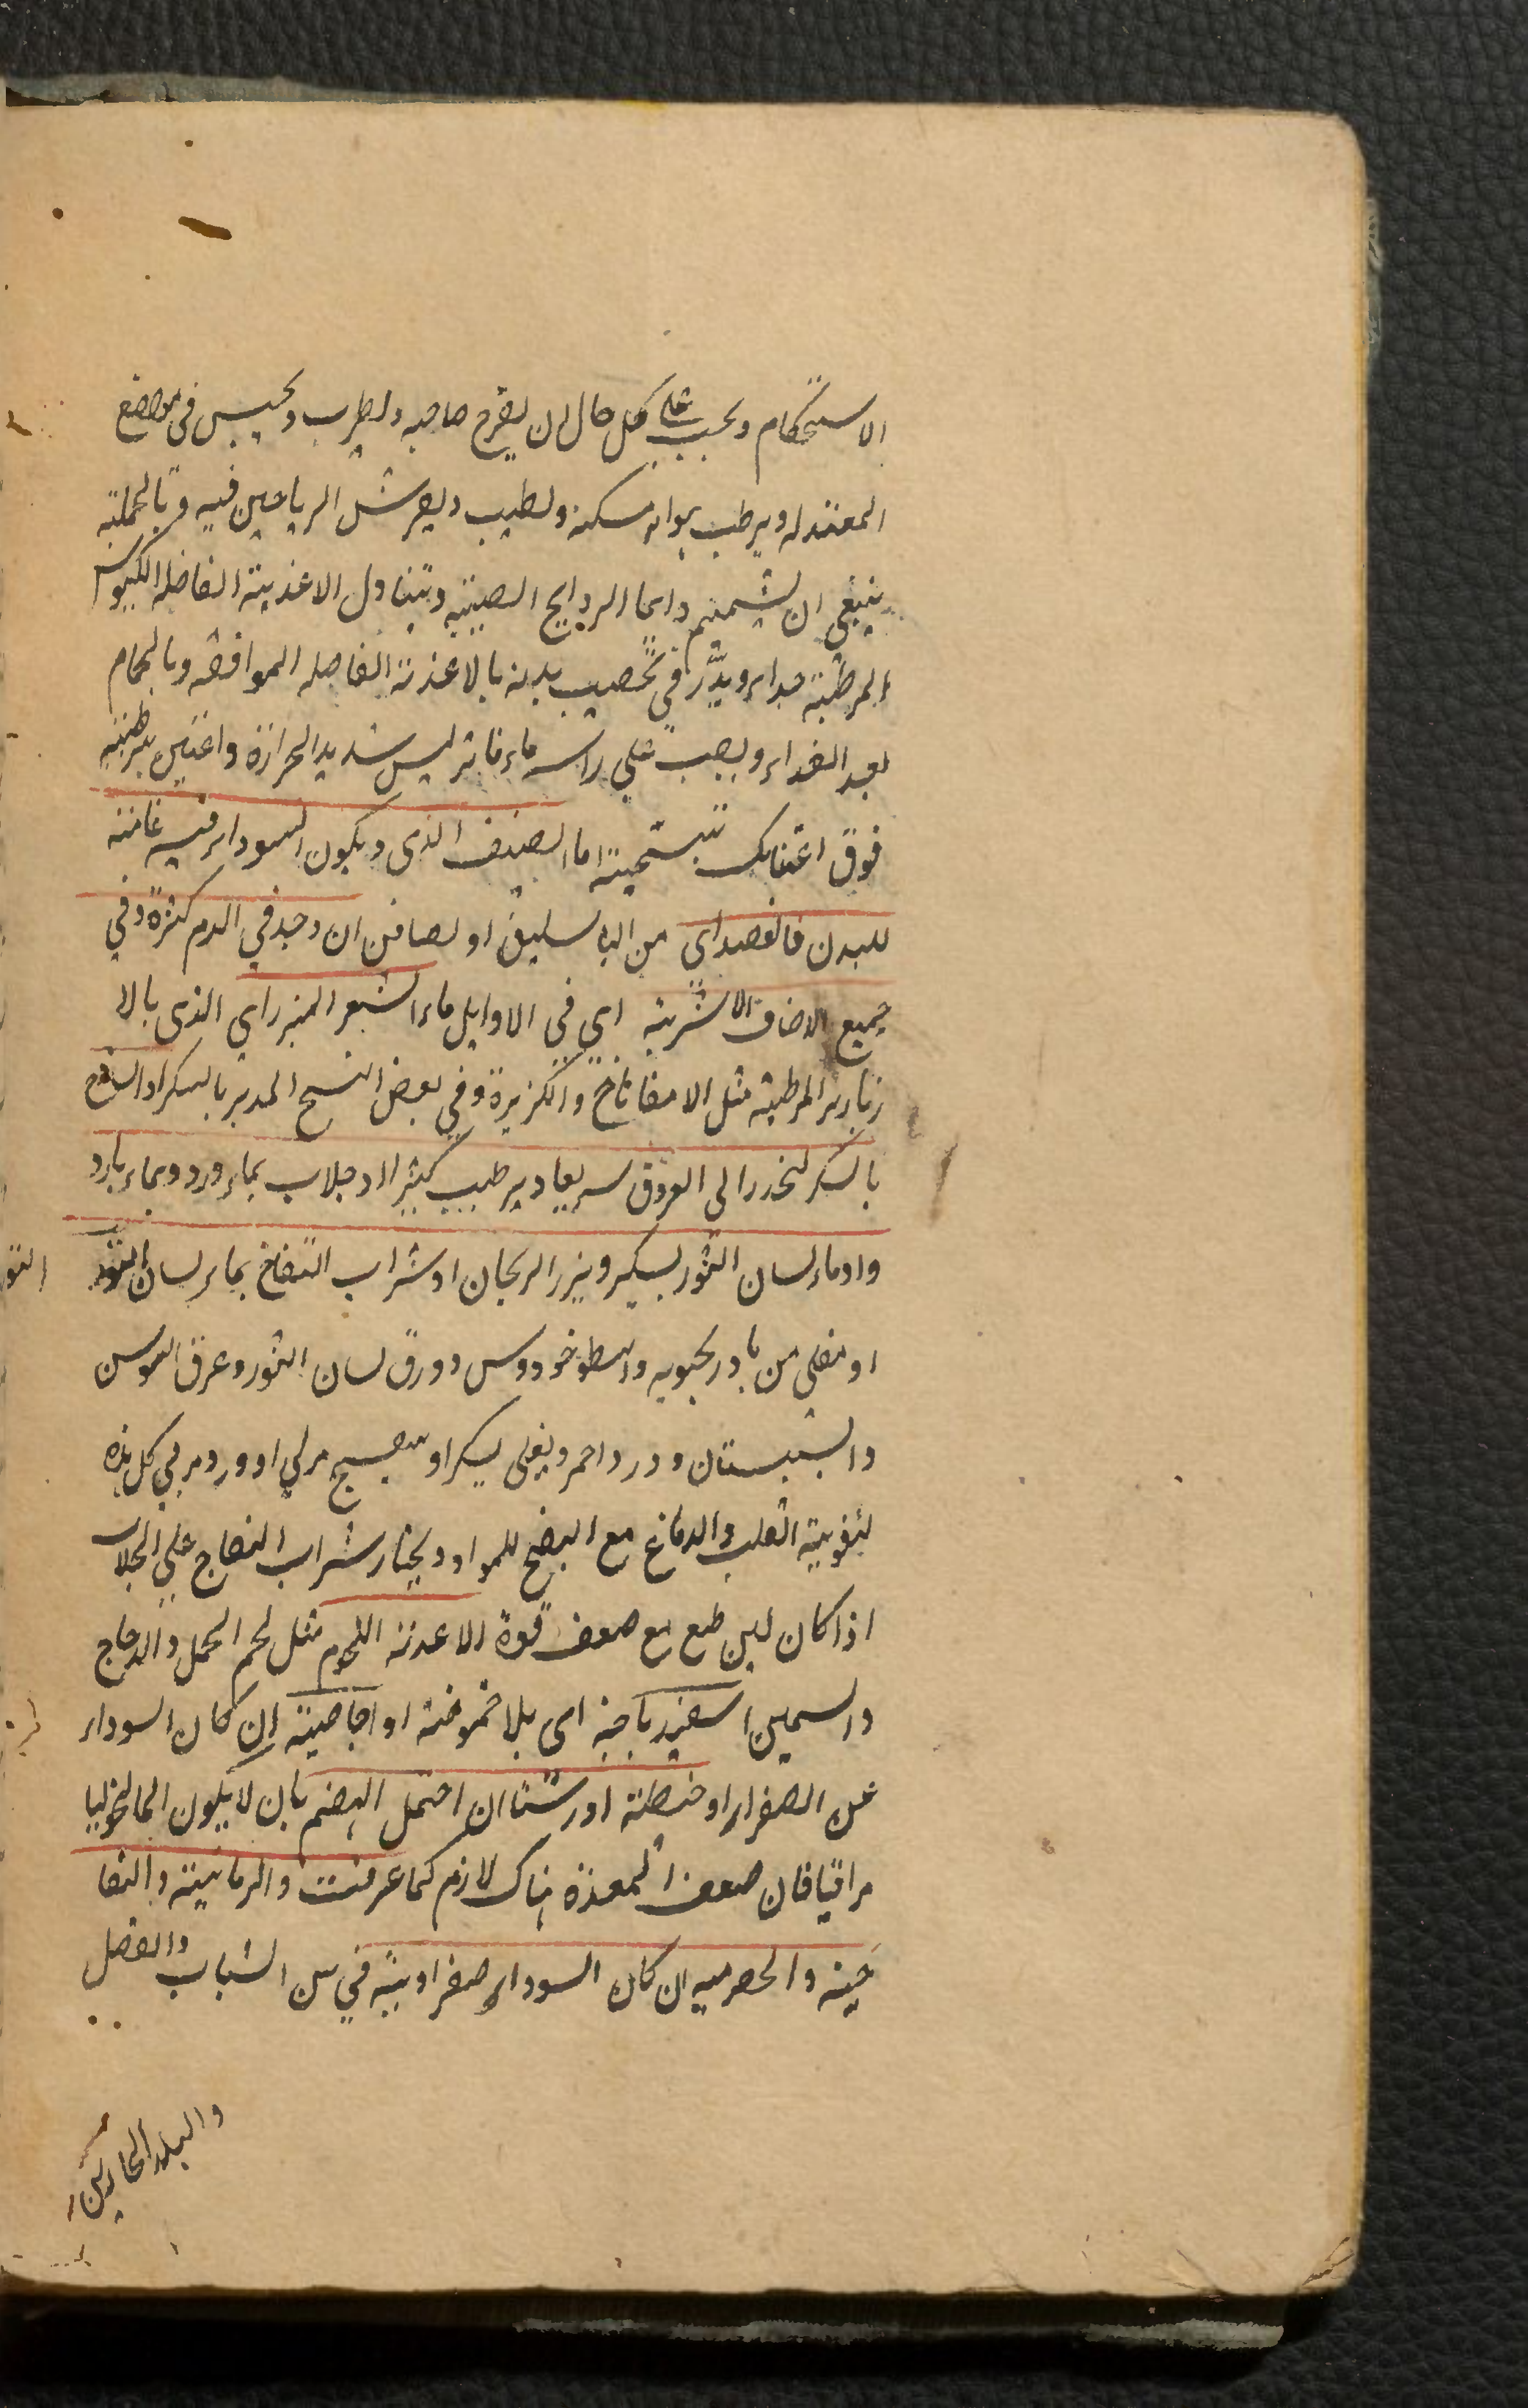 الاستحكام ويجب على كل حال ان يفرح صاحبه ويطرب ويجلس فى مواضع
المعتدله ويرطب هواء مسكنه ويطيب ويفرش الرياحين فيه وبالجملة
ينبغى ان يشمم دايما الروايح الطيبة وتناول الاغذية الفاضله الكيموس
المرطبة جداء ويدبر في تخصيب بدنه بالاغذية الفاضله الموافقه وبالحمام
بعد الغداء ويصب على راسه ماء فاتر ليس شديد الحرارة واعتن بترطيبه
فوق اعتنائك بتسخينه اما الصنف الذى ويكون السوداء فيه عامة
للبدن فالفصد اى من الباسليق او لصافن ان وجد في الدم كثرة وفي
جميع الاصناف الاشربة اى فى الاوايل ماء الشعير المبزر اي الذى بالا
بازير المرطبة مثل الاسفاناخ والكزبرة وفي بعض النسخ المدبر بالسكر او الساذج
بالسكر لينحدر الى العروق سريعا ويرطب كثيرا او جلاب بماء ورد وبماء بارد
وادماء لسان الثور بسكر وبزر الريحان او شراب التفاح بماء لسان الثور
او مغلى من بادرنجبويه واسطوخودوس وورق لسان الثور وعرق السوسن
والسبستان وورد احمر ويغلى بسكر او بنفسج مربي او ورد مربي كل هذه
لتقوية القلب والدماغ مع النضج للمواد ويختار شراب التفاح على الجلاب
اذا كان لين طبع مع ضعف قوة الاغذية اللحوم مثل لحم الحمل والدجاج
والسمين اسفيدباجة اى بلا حموضة او اجاصية ان كان السوداء
عن الصفراء او حنطية او رشتا ان احتمل الهضم بان لا يكون المالنخوليا
مراقيا فان ضعف المعدة هناك لازم كما عرفت والرمانية والتفا
حية والحصرميه ان كان السوداء صفراوية في سن الشباب والفصل
والبلد الحارين